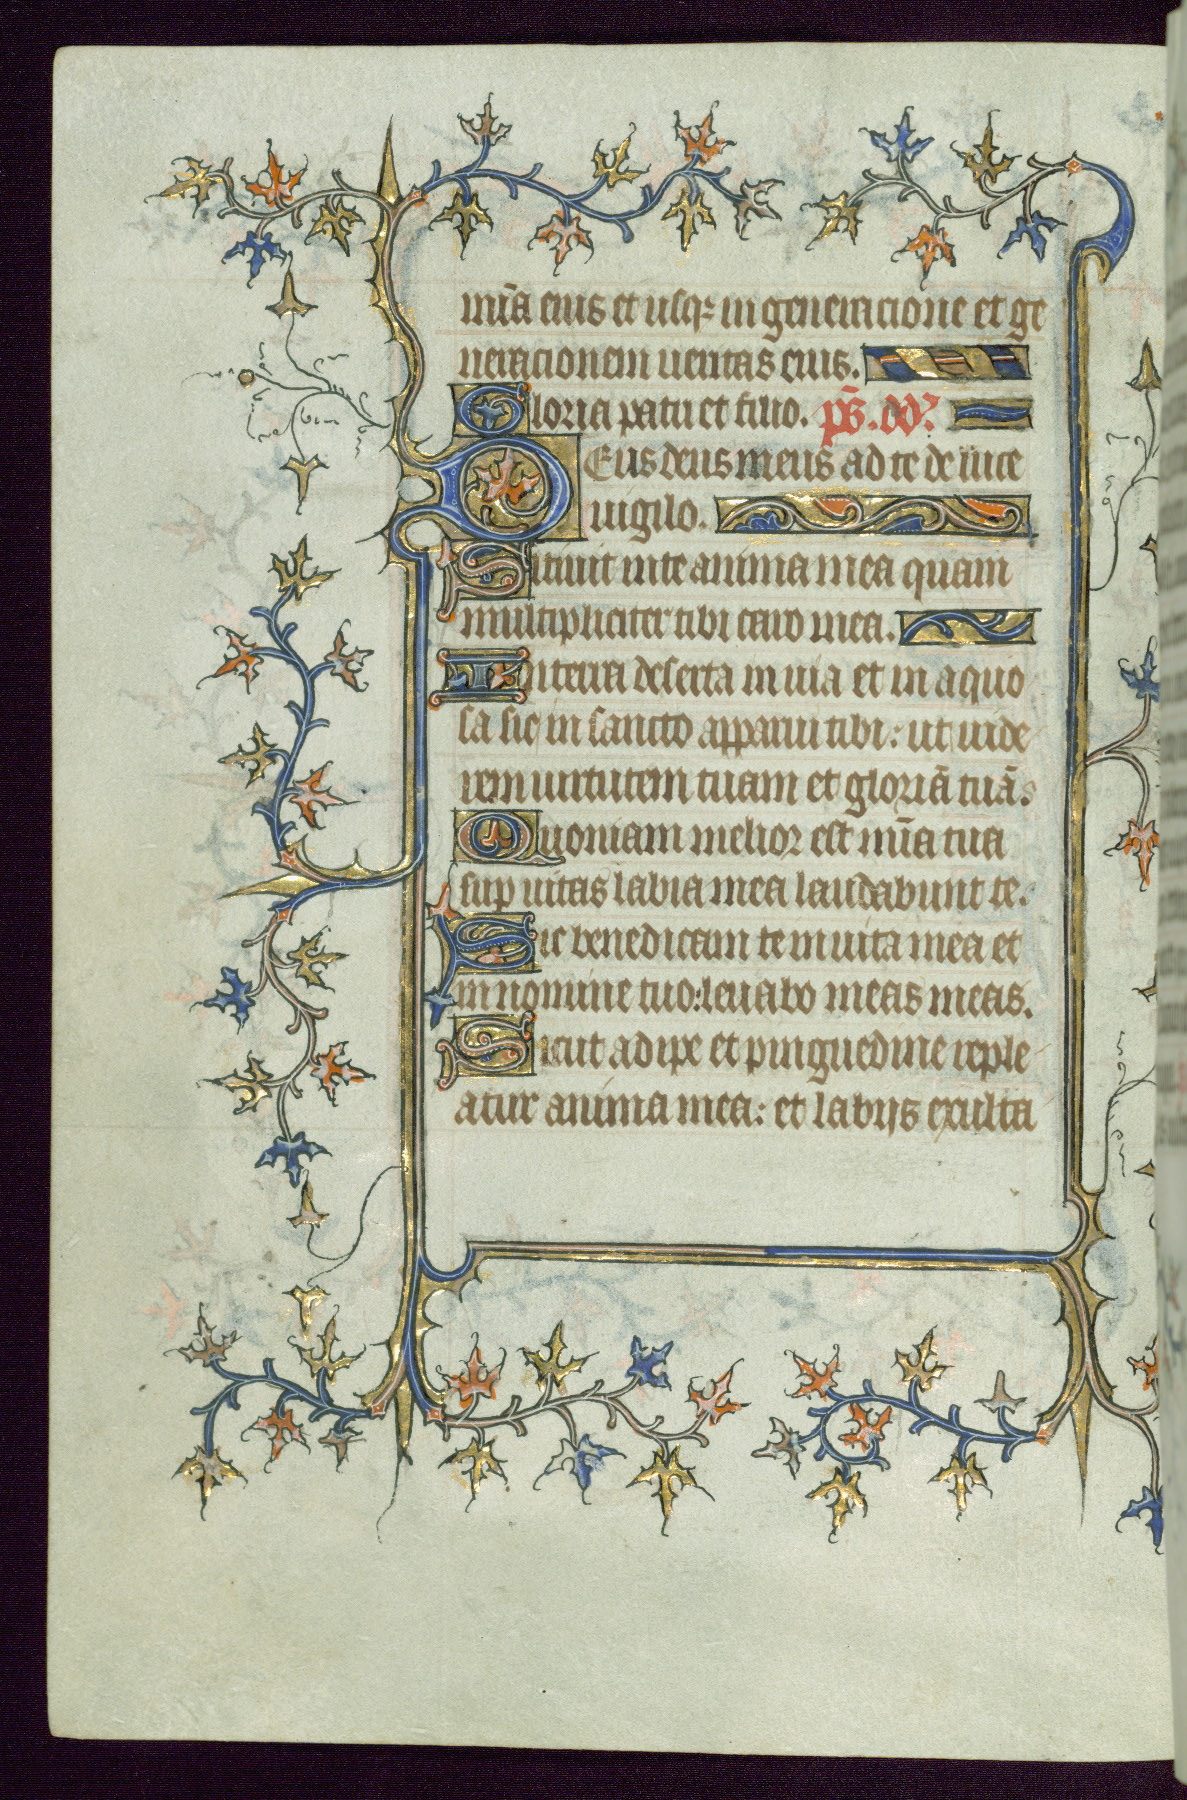 mīa eius et usq; in generacione et ge
neracionem ueritas eius.
Gloria patri et filio. ps. dd.
Deus deus meus ad te de luce
uigilo.
Sitiuit in te anima mea quam
multipliciter tibi caro mea.
In terra deserta in uia et in aquo
sa sic in sancto apparui tibi: ut uide
rem uirtutem tuam et gloriā tuā.
Quoniam melior est mīa tua
sup uitas labia mea laudabunt te.
Sic benedicam te in uita mea et
in nomine tuo: leuabo meas meas.
Sicut adipe et pinguedine reple
atur anima mea: et labijs exulta